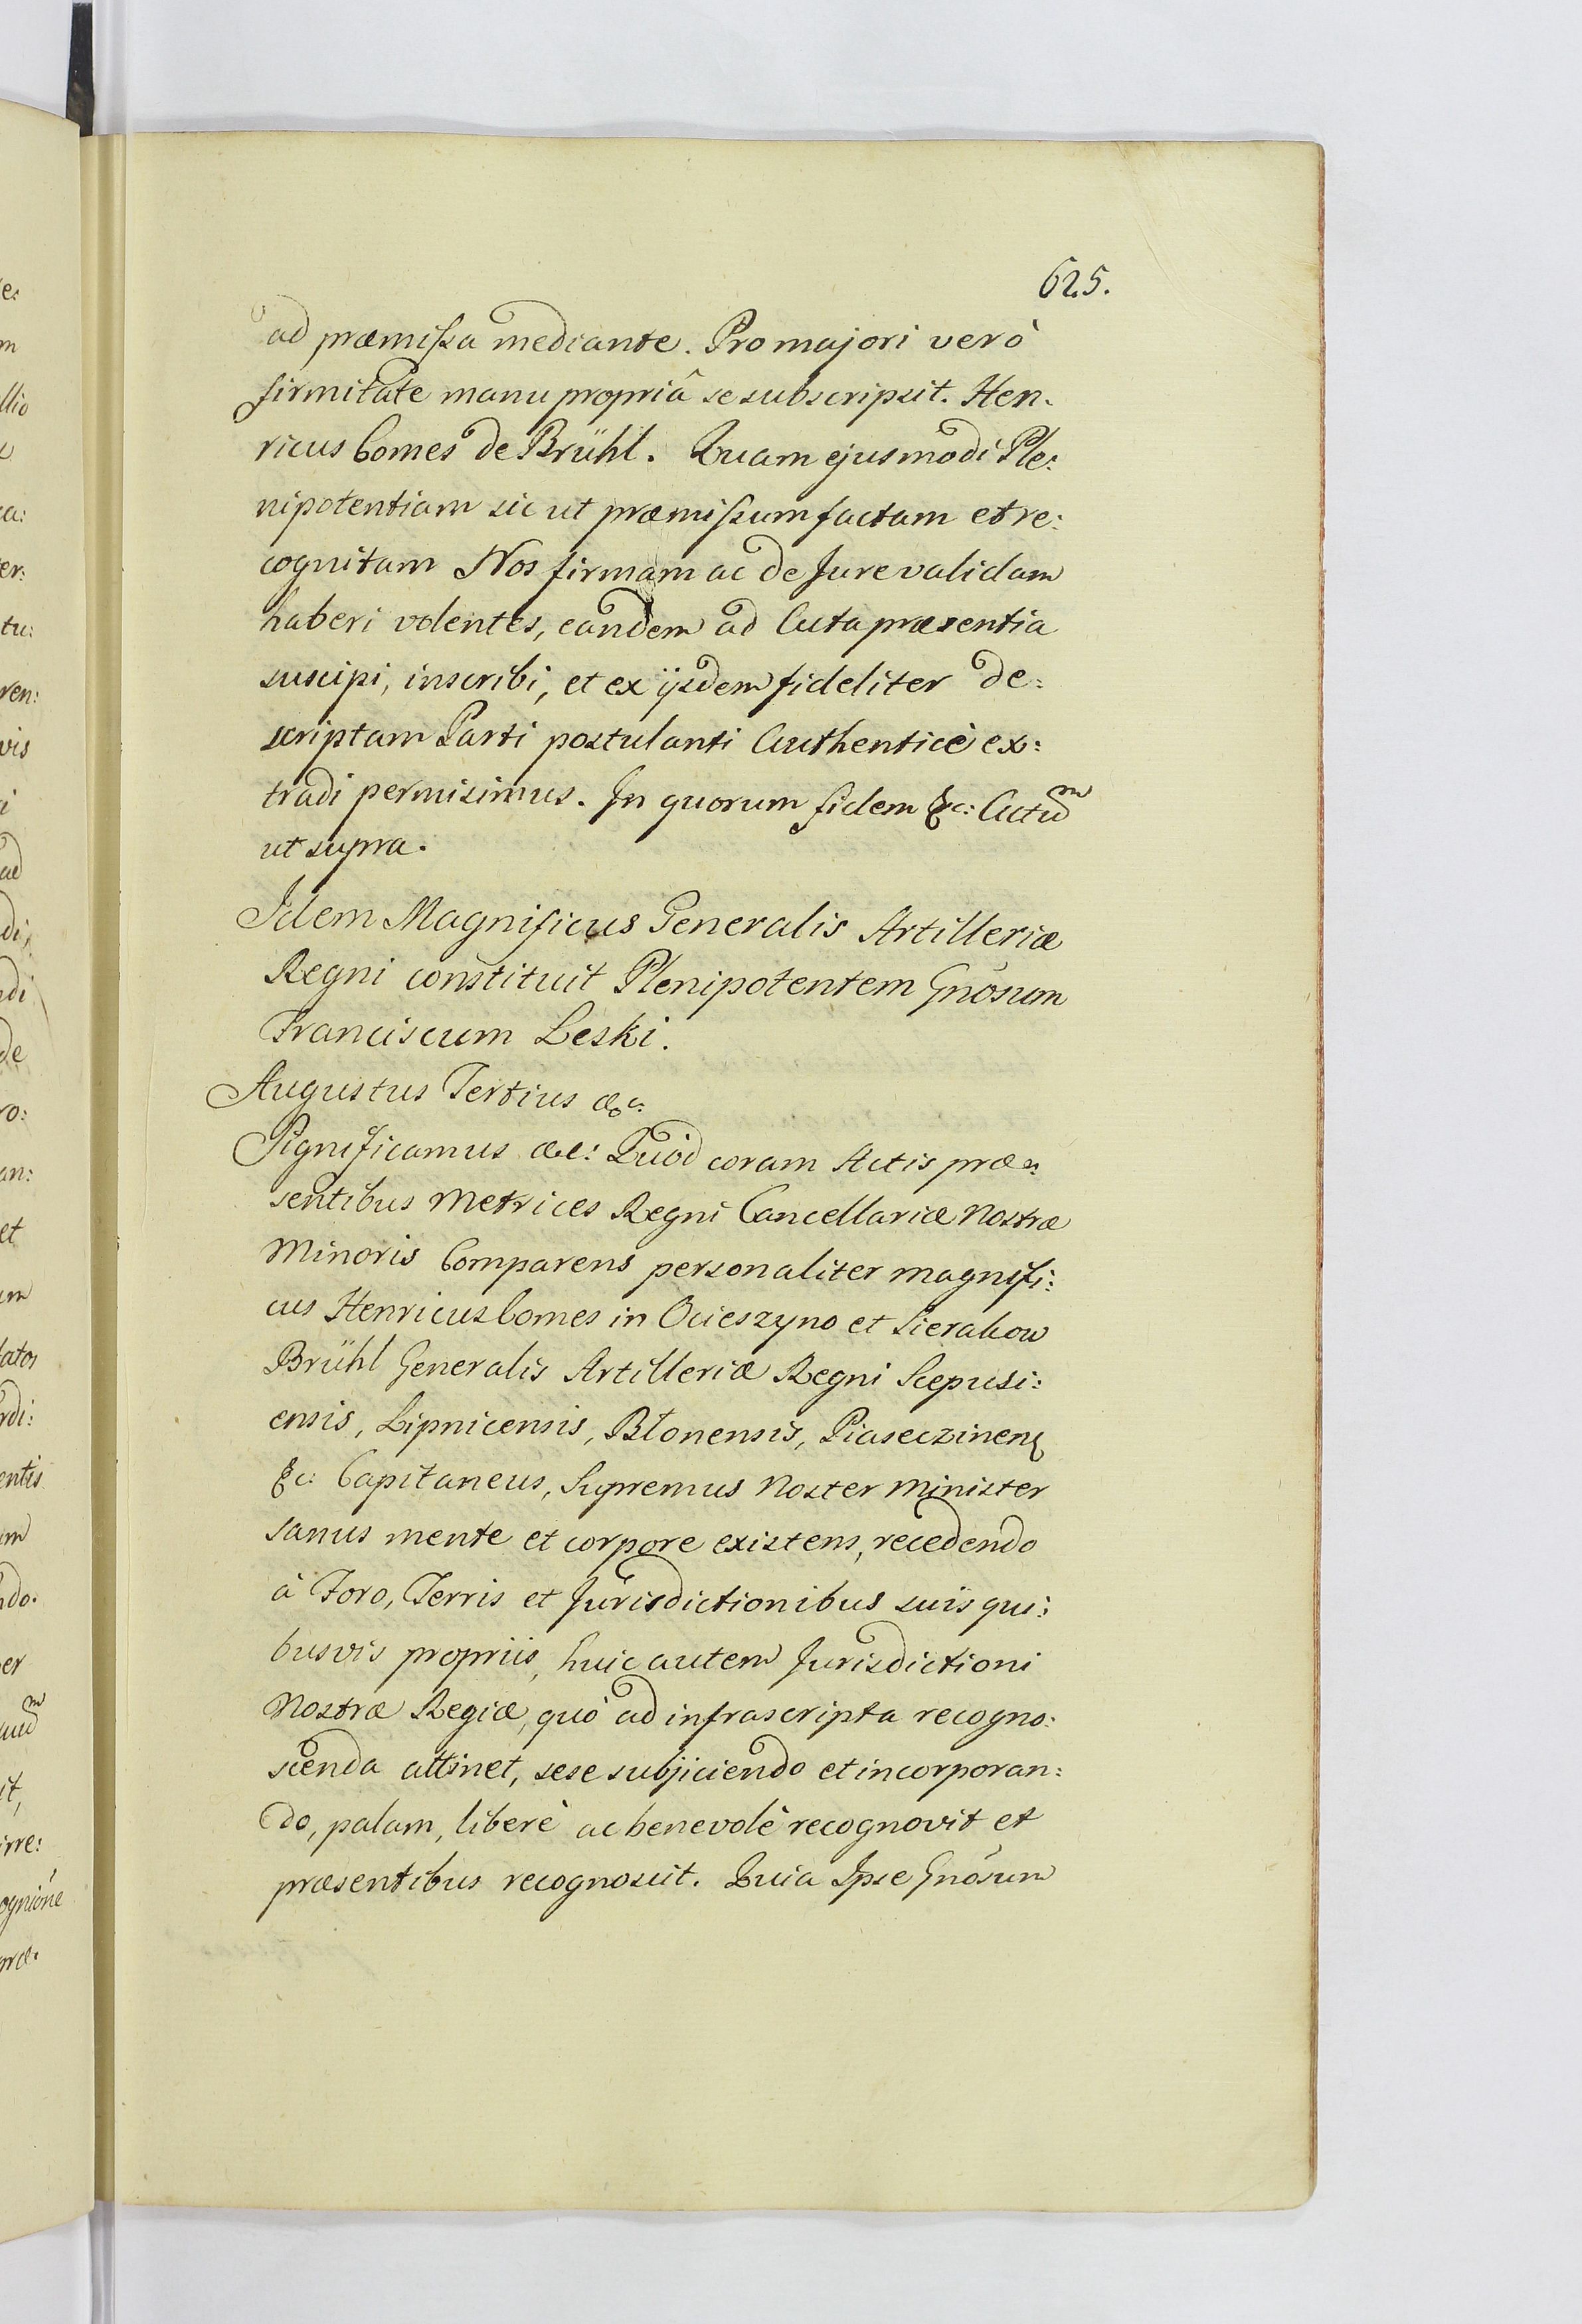 625.
ad præmissa mediante. Pro majori verò
firmitate manu propriâ se subscripsit. Hen-
ricus Comes de Brühl. Quam ejusmodi Ple:
nipotentiam sic ut præmissum factam et re:
cognitam Nos firmam ac de Jure validam
haberi volentes, eandem ad Acta præsentia
suscipi, inscribi, et ex ijsdem fideliter de:
scriptam Parti postulanti Authenticè ex:
tradi permisimus. In quorum fidem &c: Actũm
ut supra.
Idem Magnificus Generalis Artilleriæ
Regni constituit Plenipotentem Gnosum
Franciscum Leski.
Augustus Tertius &c:
Significamus &c: Quod coram Actis præ:
sentibus Metrices Regni Cancellariæ Nostræ
Minoris Comparens personaliter Magnifi:
cus Henricus Comes in Ocieszyno et Sierakow
Brühl Generalis Artilleriæ Regni Scepusi:
ensis, Lipnicensis, Błonensis, Piaseczinens
&c: Capitaneus, Supremus Noster Minister
sanus mente et corpore existens, recedendo
à Foro, Terris et Jurisdictionibus suis qui:
busvis propriis, huic autem Jurisdictioni
Nostræ Regiæ, quò ad infrascripta recogno:
scenda attinet, sese subjiciendo et incorporan:
do, palam, liberè ac benevolè recognovit et
præsentibus recognoscit. Quia Ipse Gnosum